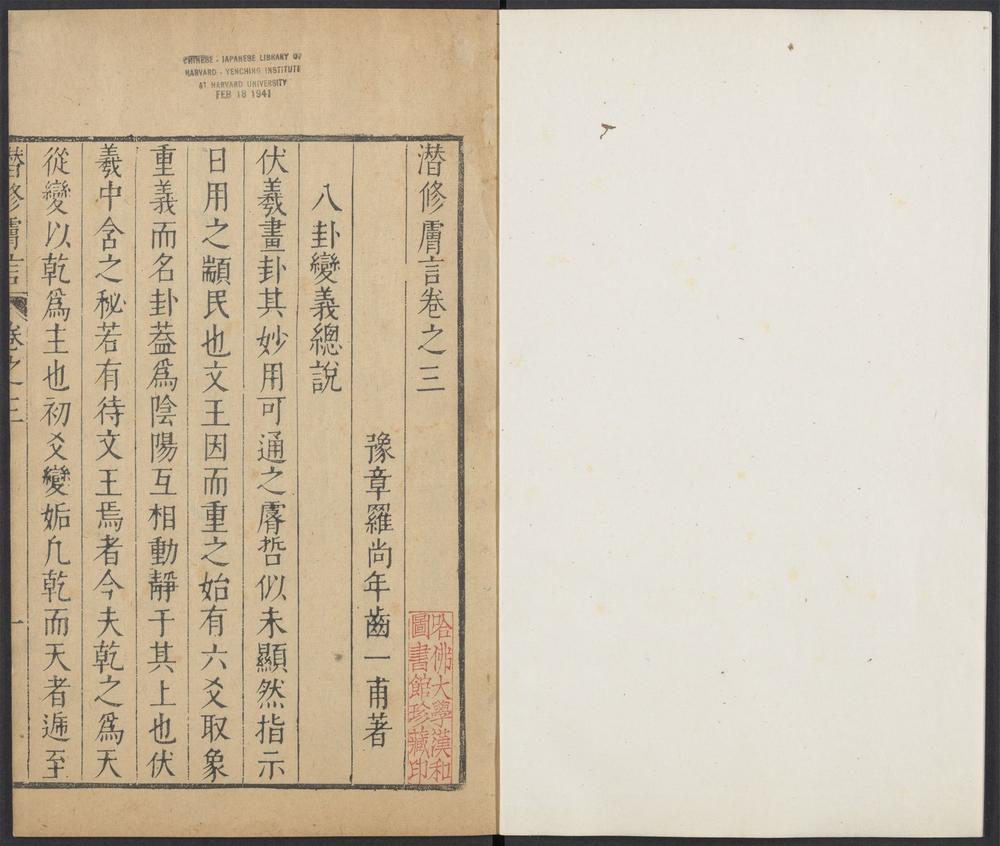 CHINESE - JAPANESE LIBRARY OF
HARVARD - YENCHING INSTITUTE
AT HARVARD UNIVERSITY
FEB 18 1941
潛修膚言卷之三
豫章羅尚年齒一甫著
八卦變義總說
伏羲畫卦其妙用可通之睿哲似未顯然指示
日用之顓民也文王因而重之始有六爻取象
重義而名卦葢爲陰陽互相動靜于其上也伏
羲中含之秘若有待文王焉者今夫乾之爲天
從變以乾爲主也初爻變姤凢乾而天者遞至
潛修膚言
卷之三
一
哈佛大學漢和
圖書館珍藏印